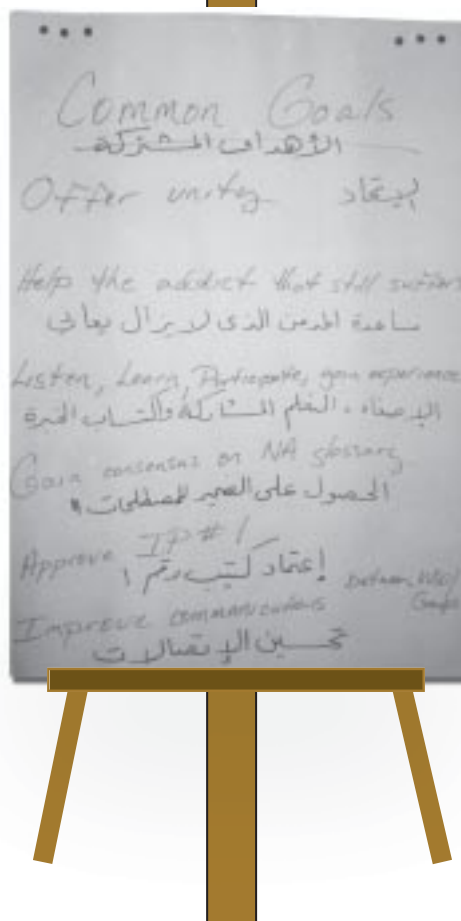 Common Goals
الأهداف المشتركة
Offer unity
Help the addict that still suffers
مساعدة المدمن الذي لا يزال يعاني
Listen, Learn, Participate, gain experience
الإصغاء، التعلم المشاركة واكتساب الخبرة
Gain consensus on NA glossary
الحصول على الضمير لمصطلحات
Approve IP #1
إعتماد كتيب رقم ١
Improve communications between
Groups
تحسين الإتصالات